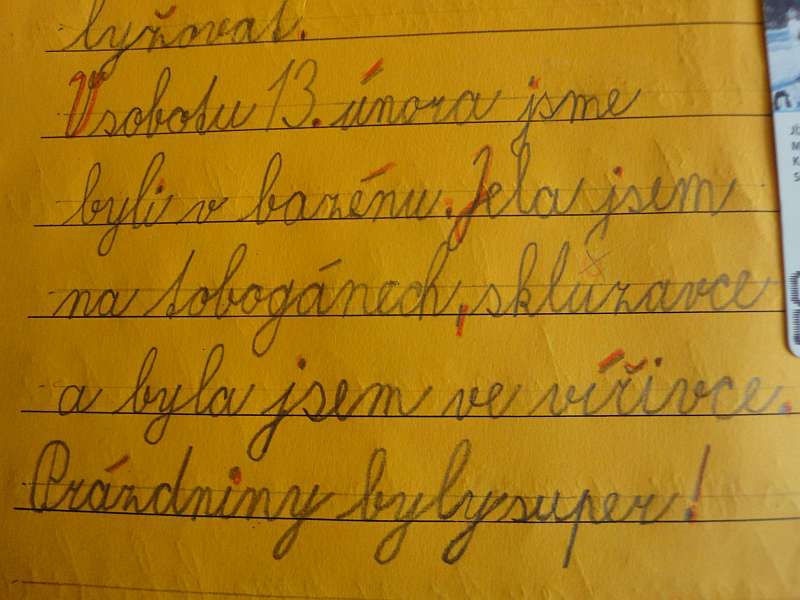 lyžovat.
V sobotu 13. února jsme
byli v bazénu. Jela jsem
na tobogánech, skluzavce
a byla jsem ve vířivce.
Prázdniny byly super!